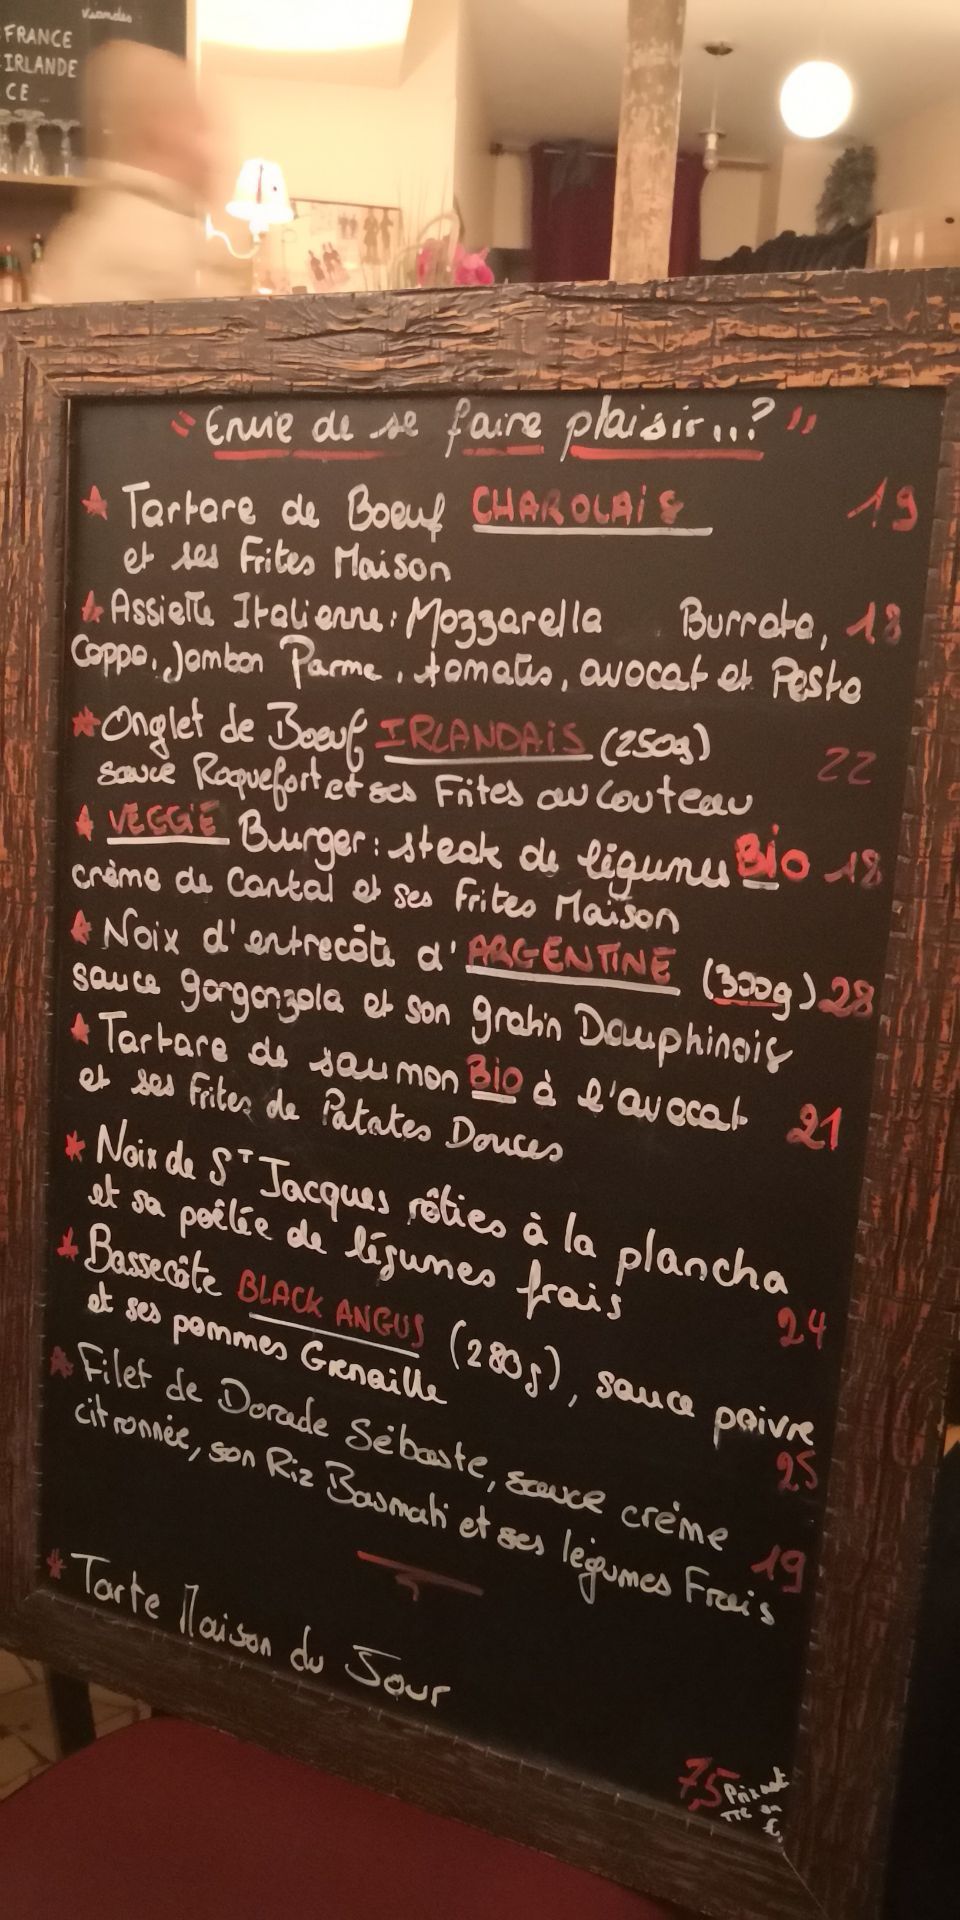 Viandes
FRANCE
IRLANDE
CE
"Envie de se faire plaisir...?"
★ Tartare de Boeuf CHAROLAIS 19
et ses Frites Maison
★ Assiette Italienne: Mozzarella Burrata, 18
Coppa, Jambon Parme, tomates, avocat et Pesto
★ Onglet de Boeuf IRLANDAIS (250g)
sauce Roquefort et ses Frites au Couteau 22
★ VEGGIE Burger: steak de légumes BiO 18
crème de Cantal et ses Frites Maison
★ Noix d'entrecôte d'ARGENTINE (300g) 28
sauce gorgonzola et son gratin Dauphinois
★ Tartare de saumon BiO à l'avocat 21
et ses Frites de Patates Douces
★ Noix de ST Jacques rôties à la plancha
et sa poêlée de légumes frais 24
★ Bassecôte BLACK ANGUS (280g), sauce poivre
et ses pommes Grenaille 25
★ Filet de Dorade Sébaste, sauce crème
citronnée, son Riz Basmati et ses légumes Frais 19
★ Tarte Maison du Jour
7,5 Prix net
TTC en
€.